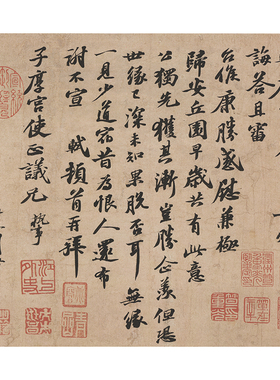 誨答且審
台候康勝感慰兼極
歸安丘園早歲共有此意
公獨先獲其漸豈勝企羨但恐
世緣已深未知果脫否耳無緣
一見少道宿昔為恨人還布
謝不宣 軾頓首再拜
子厚宮使正議兄執事